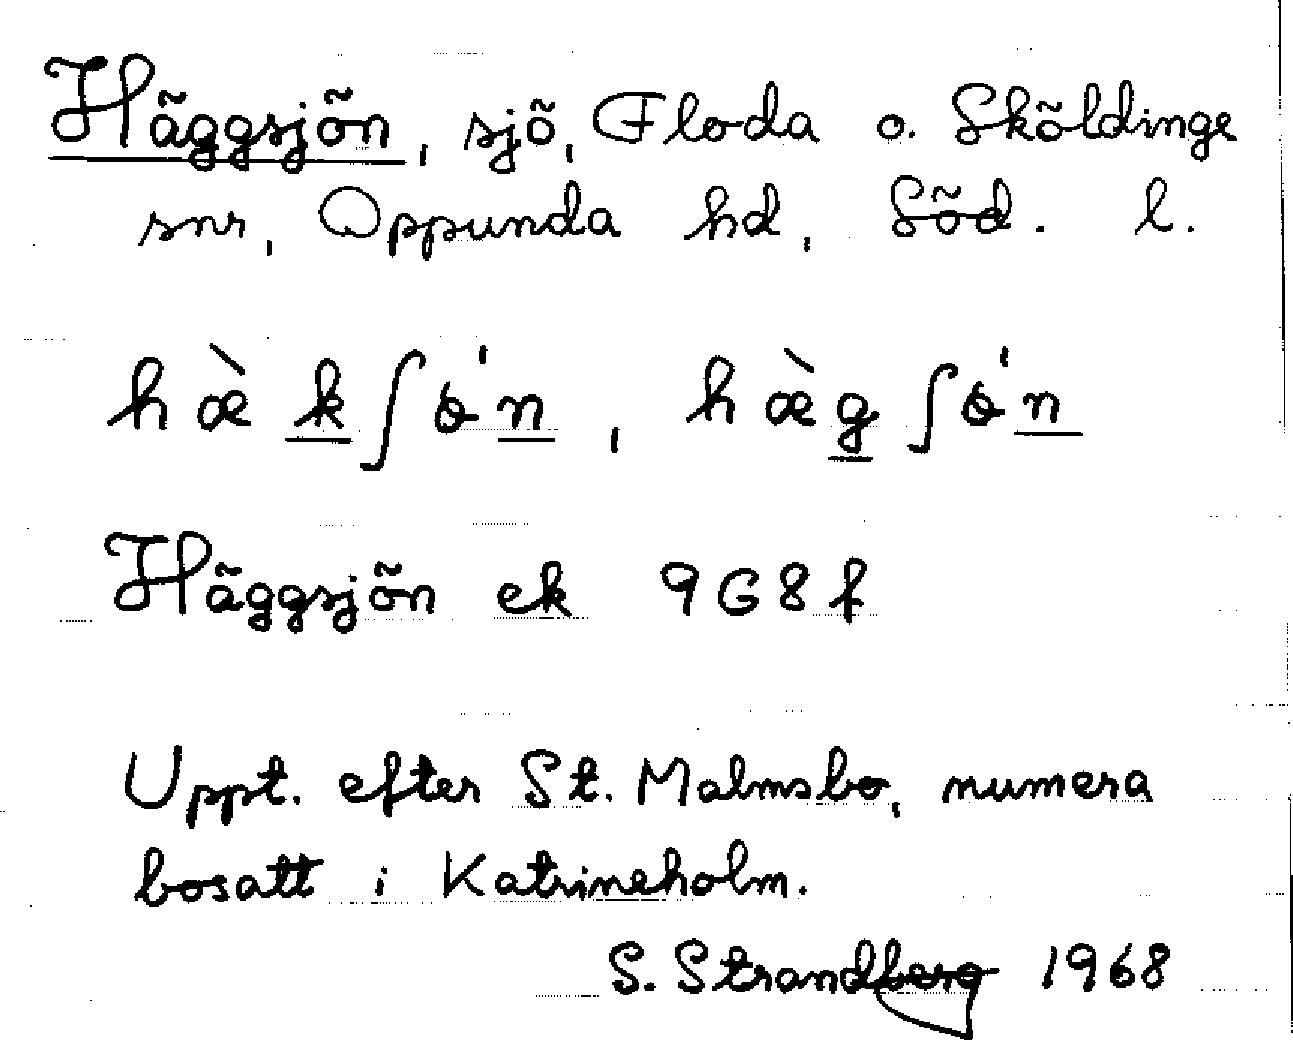 Häggsjön, sjö, Floda o. Sköldinge
snr, Oppunda hd, Söd. l.
hæ̀kʃö́n, hæ̀gʃö́n
Häggsjön ek 9G8f
Uppt. efter St. Malmsbo, numera
bosatt i Katrineholm.
S. Strandberg 1968